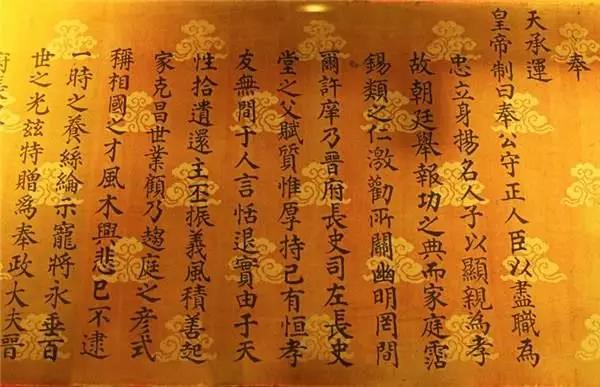 奉
天承運
皇帝制曰奉公守正人臣以盡職為
忠立身揚名人子以顯親為孝
故朝廷舉報功之典而家庭霑
錫類之仁激勸所關幽明罔間
爾許庠乃晉府長史司左長史
堂之父賦質惟厚持己有恒孝
友無間于人言恬退實由于天
性拾遺還主丕振義風積善起
家克昌世業顧乃趨庭之彥式
稱相國之才風木興悲已不逮
一時之養絲綸示寵將永垂百
世之光茲特贈為奉政大夫晉